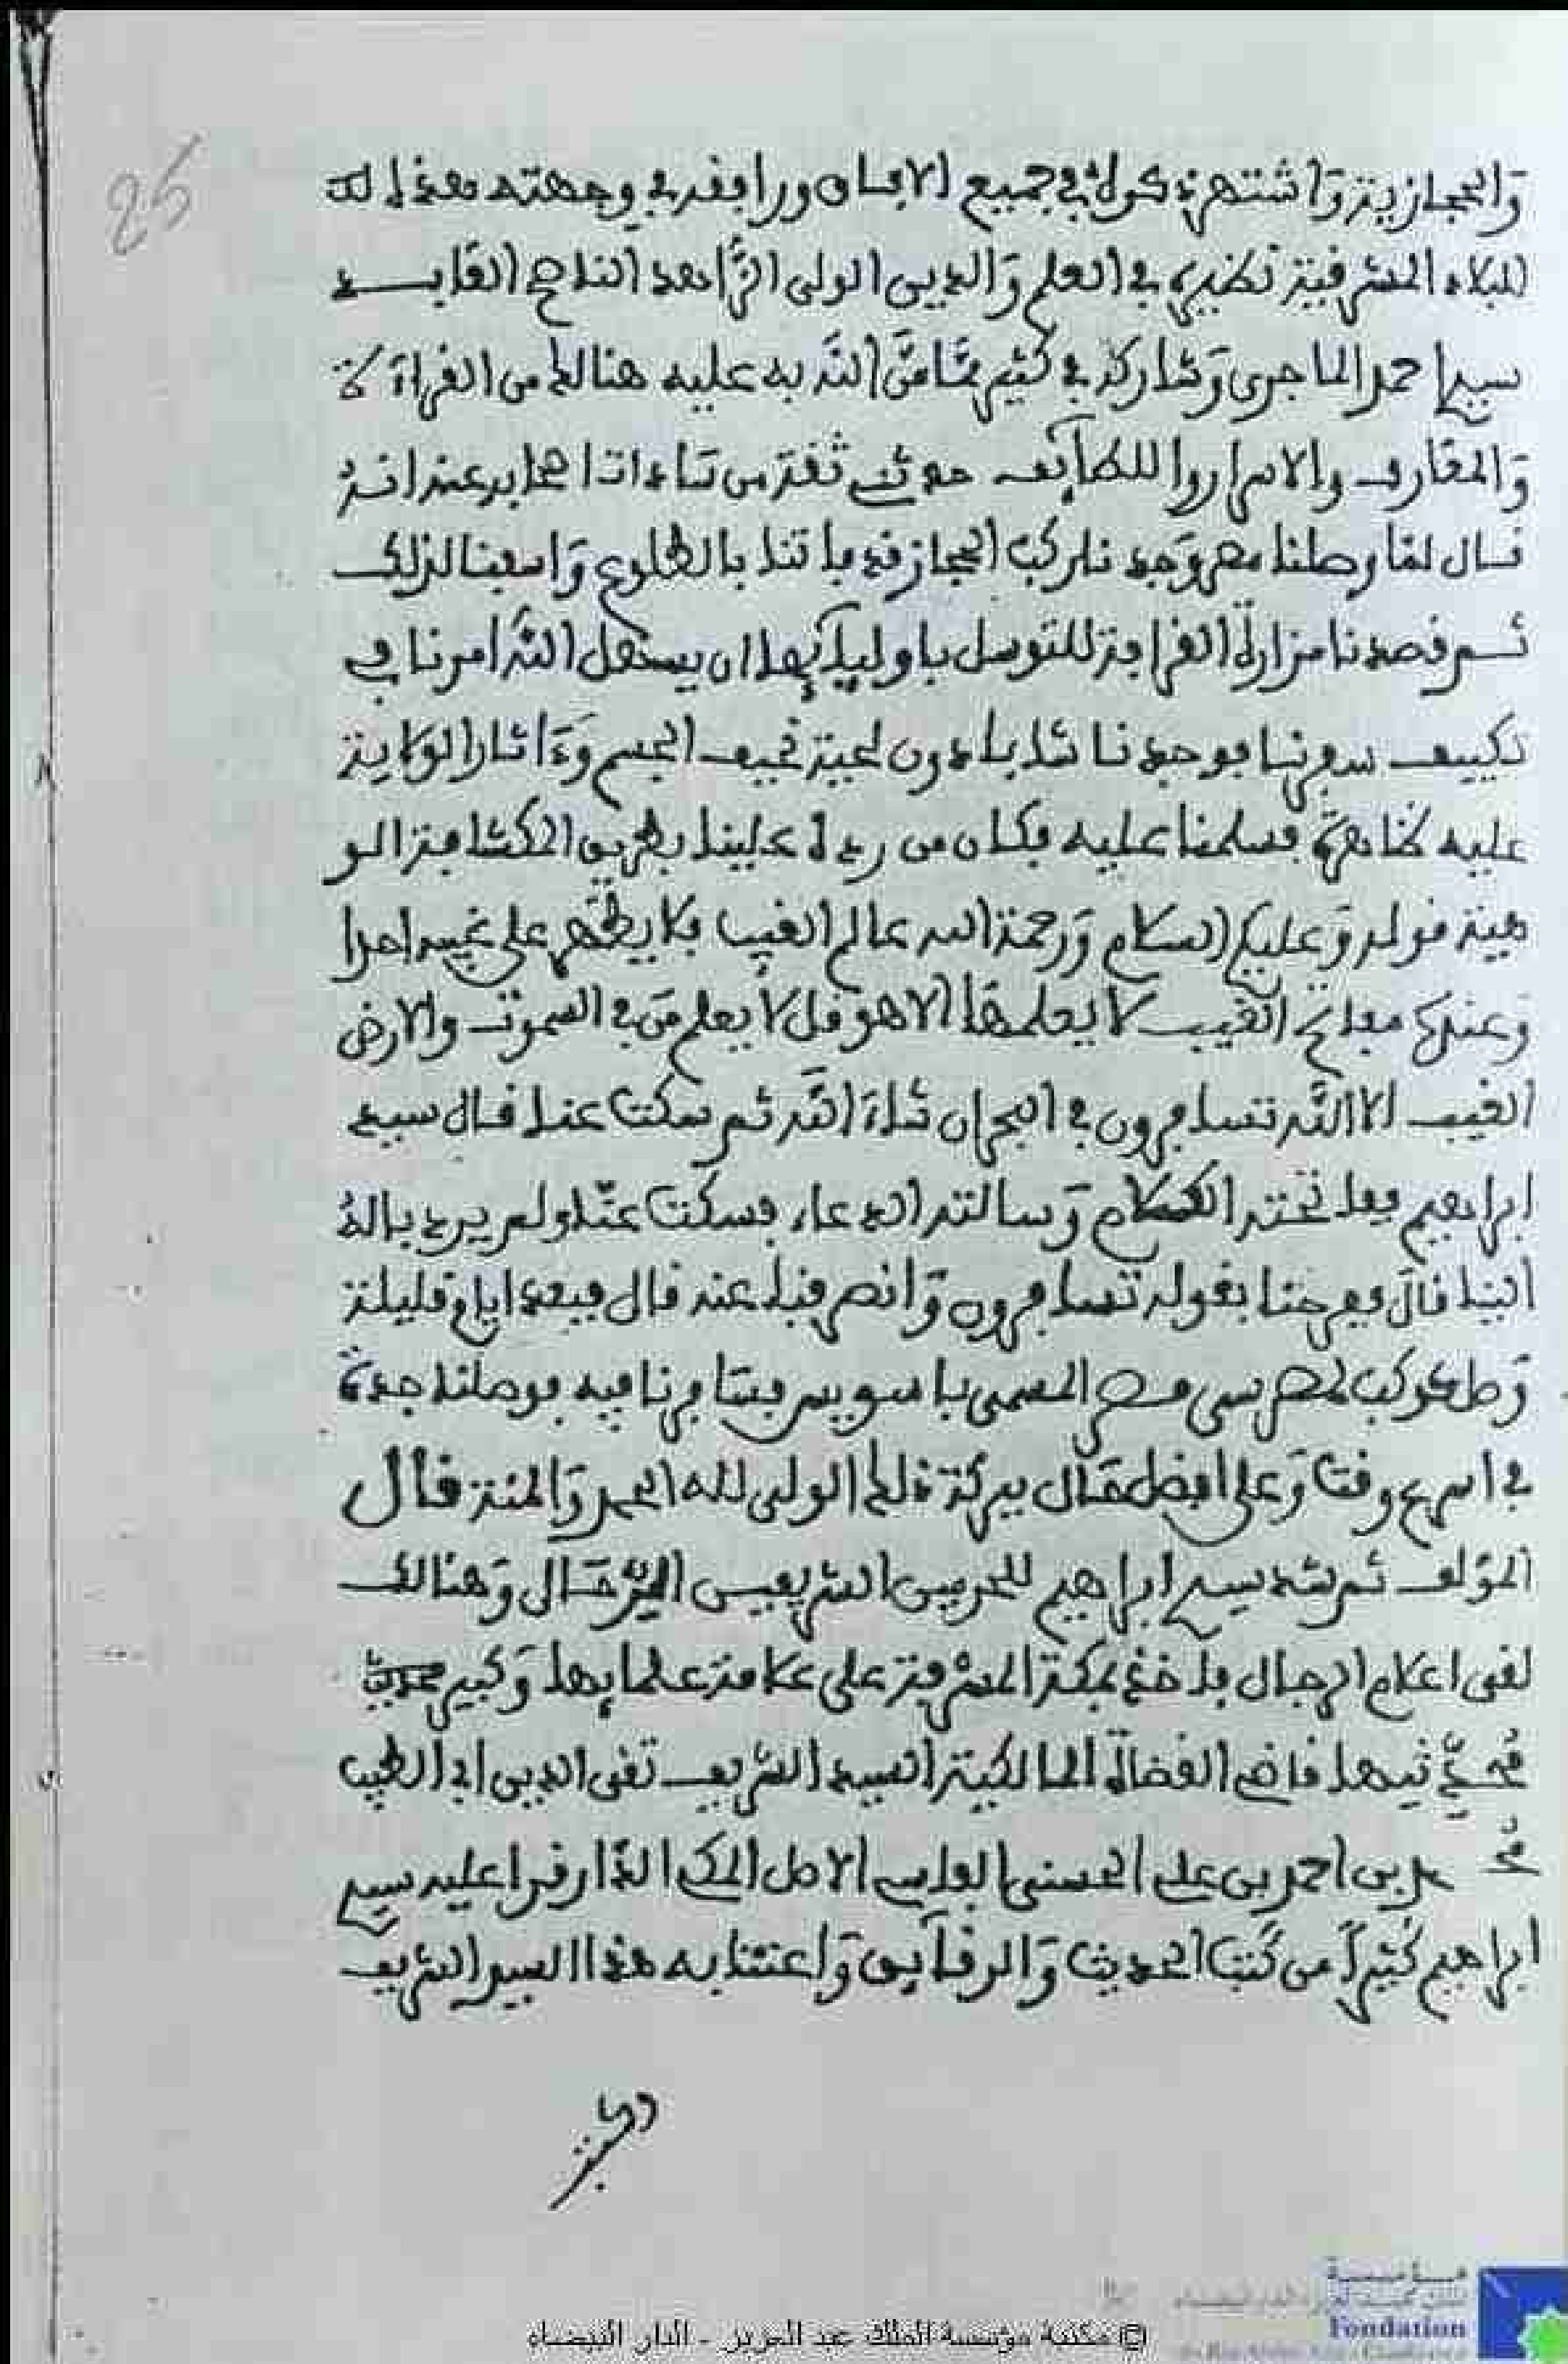 25
والحجازية واشتهر ذكره في جميع الافاق ورافقه في وجهته هذه لله
البلاد المشرقية نظيره في العلم والدين الولي الزاهد الناصح العابد
سيدي احمد الماجري وشاركه في كثير مما من الله به عليه هنالك من القراءة
والمعارف والاسرار واللطائف حدثني ثقة من ساداتنا اصحابه عنه انه
قال لما وصلنا مصر وجدنا ركب الحجاز قد فاتنا بالطلوع واسفنا لذلك
ثم قصدنا مزارة القرافة للتوسل باوليائها ان يسهل الله امرنا في
تكييف سفرنا فوجدنا شابا دون لحية نحيف الجسم وءاثار الولاية
عليه ظاهرة فسلمنا عليه فكان من رده علينا بطريق المكاشفة الو
هبية قوله وعليكم السلام ورحمة الله عالم الغيب فلا يظهر على غيبه احدا
وعنده مفاتح الغيب لا يعلمها الا هو قل لا يعلم من في السموت والارض
الغيب الا الله تسافرون في البحر ان شاء الله ثم سكت عنا قال سيدي
ابراهيم فباحثته الكلام وسالته الدعاء فسكت عنا ولم يرد باله
الينا قال ففرحنا بقوله تسافرون وانصرفنا عنه قال فبعد ايام قليلة
وصل مركب لمرسى مصر المسمى باسويس فسافرنا فيه فوصلنا جدة
في اسرع وقت وعلى افضل حال ببركة ذلك الولي لله الحمد والمنة قال
المؤلف ثم شد سيدي ابراهيم للحرمين الشريفين الرحال وهنالك
لقى اعلام الرجال فاخذ بمكة المشرفة على علامة علمائها وكبير
محدثيها قاضي القضاة المالكية السيد الشريف تقى الدين ابي الطيب
محمد بن احمد بن علي الحسني الفاسي الاصل المكي الدار قرا عليه سيدي
ابراهيم كثيرا من كتب الحديث والرقائق واعتنا به هذا السيد الشريف
© مكتبة مؤسسة الملك عبد العزيز - الدار البيضاء
مؤسسة
Fondation